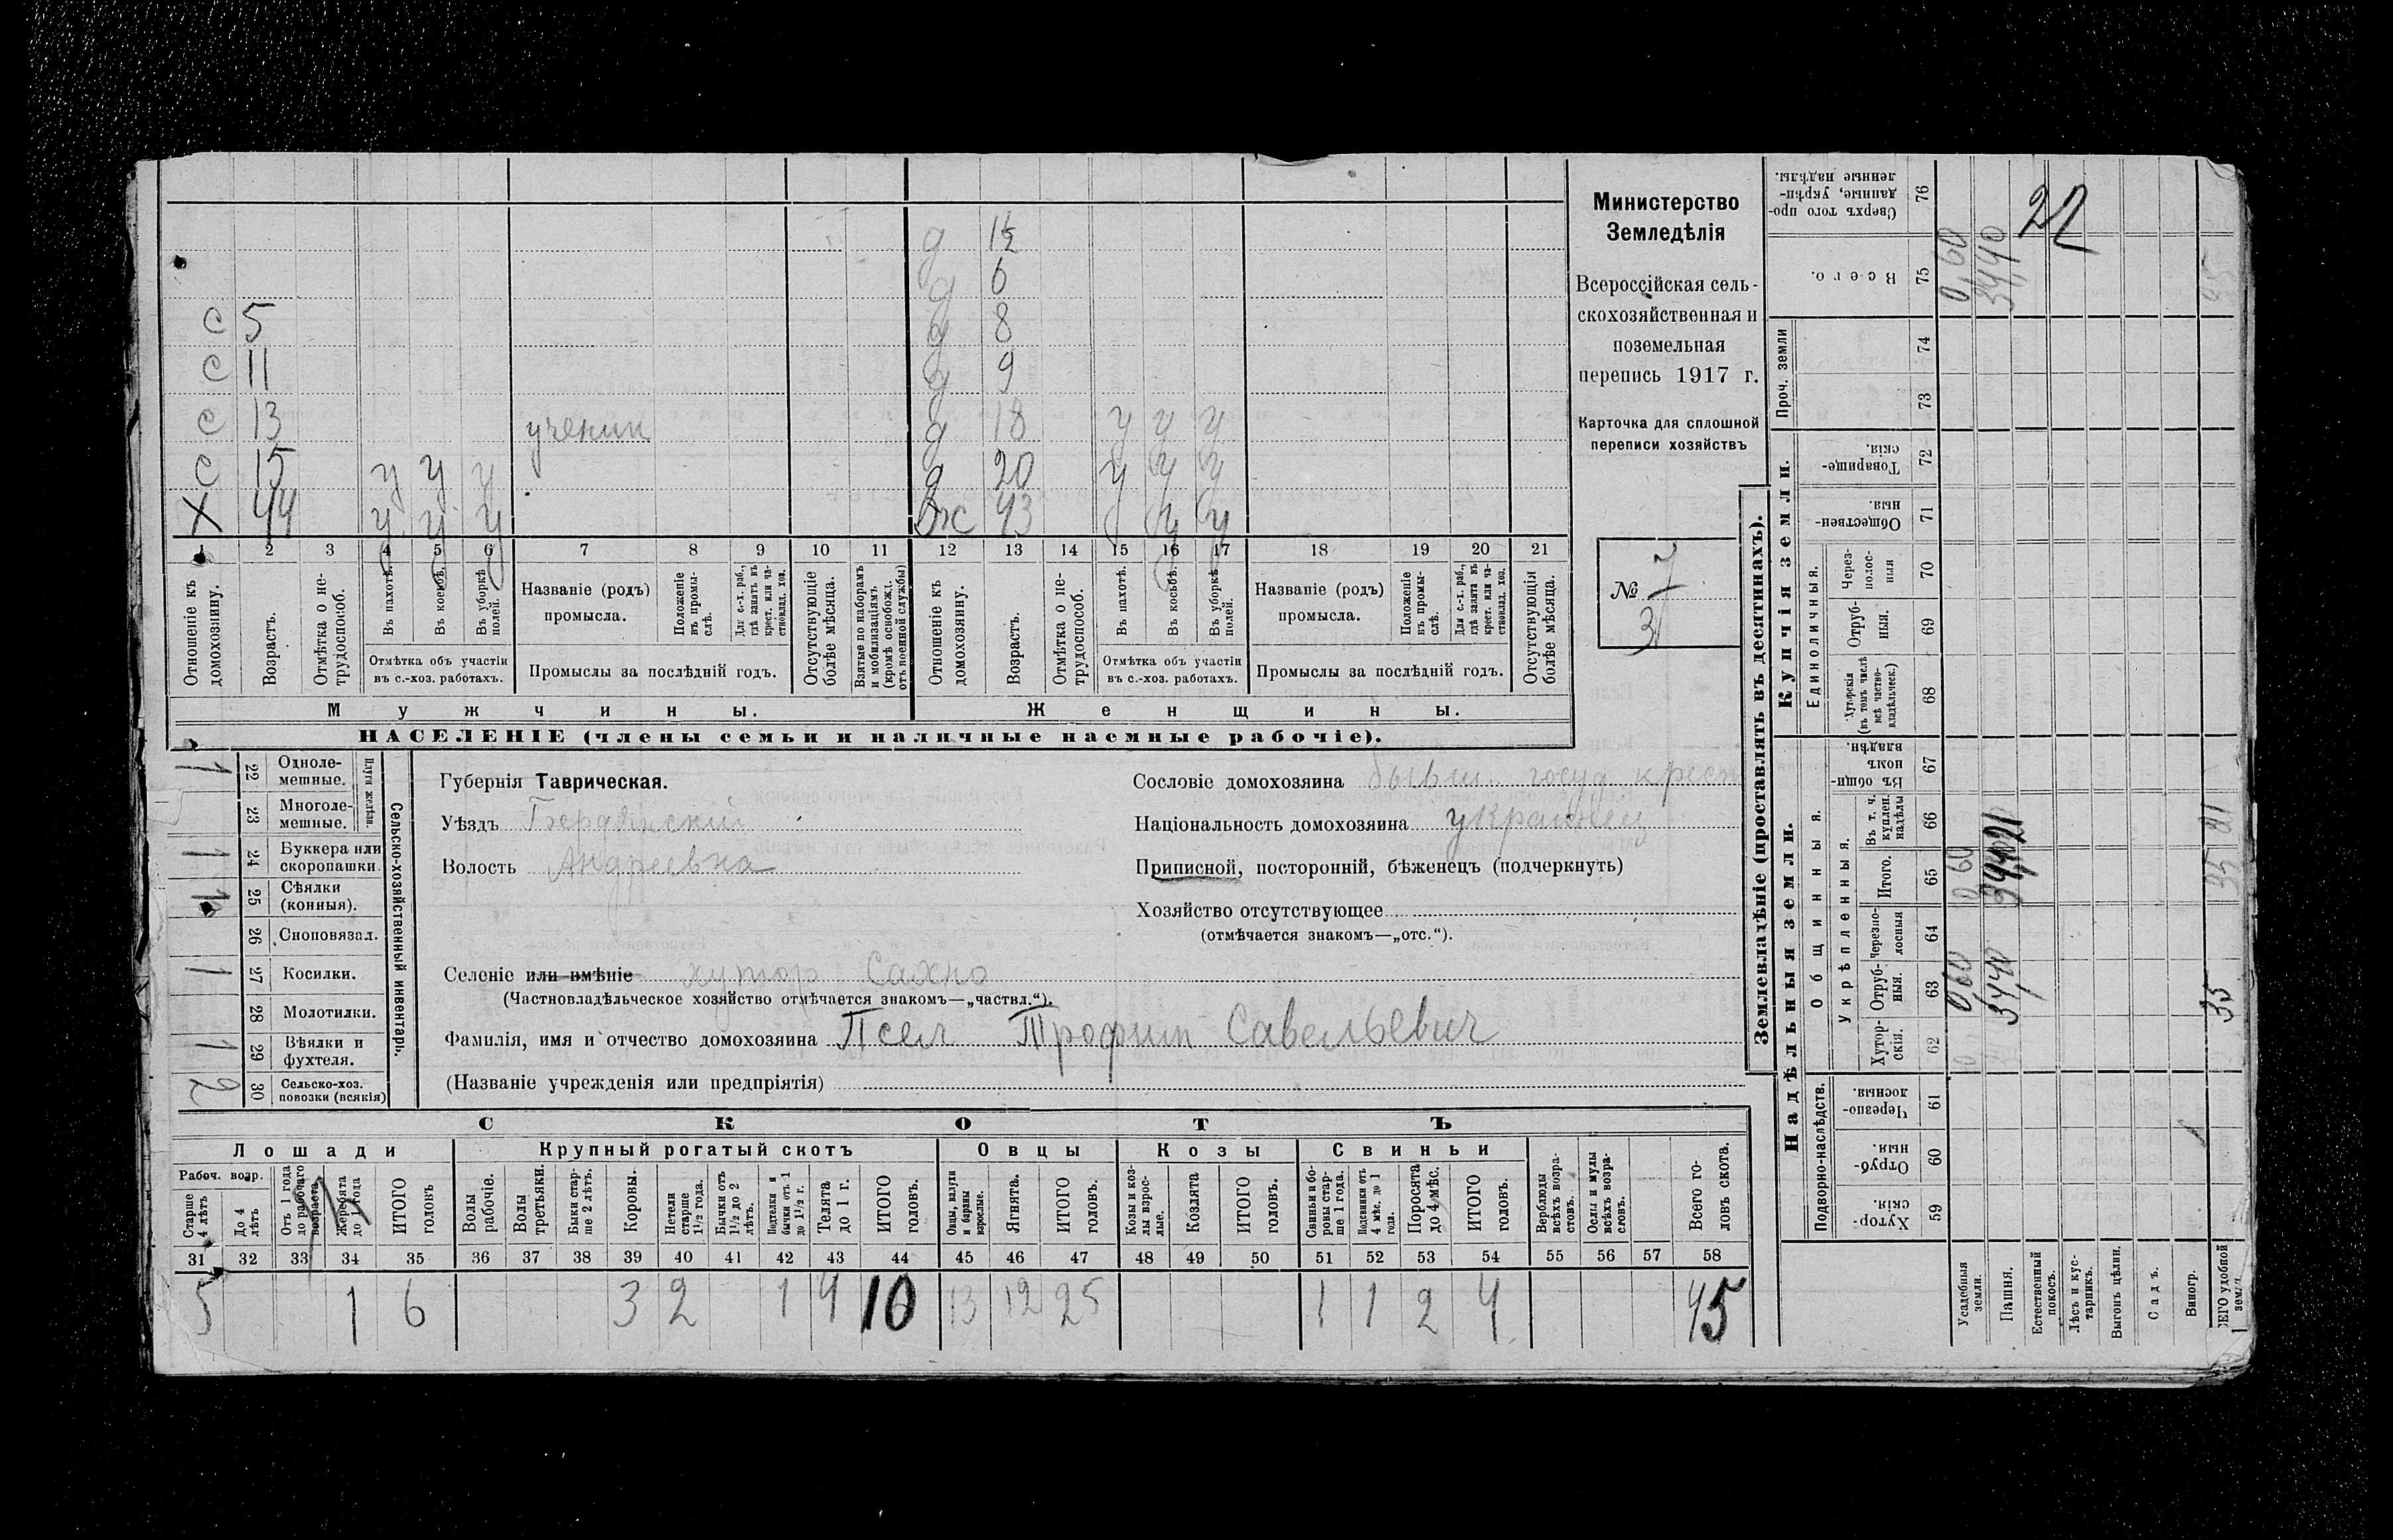 д 1½
д 6
с 5 д 8
с 11 д 9
с 13 ученик д 18 у у у
с 15 у у у д 20 у у у
Х 44 у у у ж 43 у у у
1 2 3 4 5 6 7 8 9 10 11 12 13 14 15 16 17 18 19 20 21
Отношеніе къ домохозяину.
Возрастъ.
Отмѣтка о не-трудоспособ.
Въ пахотѣ.
Въ косьбѣ.
Въ уборкѣ полей.
Отмѣтка объ участіи въ с.-хоз. работахъ.
Названіе (родъ) промысла.
Положеніе въ промы-слѣ.
Для с.-х. раб., гдѣ занятъ въ крест. или ча-стновлад. хоз.
Промыслы за послѣдній годъ.
Отсутствующіе болѣе мѣсяца.
Взятые по наборамъ и мобилизаціямъ (кромѣ освобожд. отъ военной службы)
Отношеніе къ домохозяину.
Возрастъ.
Отмѣтка о не-трудоспособ.
Въ пахотѣ.
Въ косьбѣ.
Въ уборкѣ полей.
Отмѣтка объ участіи въ с.-хоз. работахъ.
Названіе (родъ) промысла.
Положеніе въ промы-слѣ.
Для с.-х. раб., гдѣ занята въ крест. или ча-стновлад. хоз.
Промыслы за послѣдній годъ.
Отсутствующія болѣе мѣсяца.
Мужчины.
Женщины.
НАСЕЛЕНІЕ (члены семьи и наличные наемные рабочіе).
Министерство
Земледѣлія
Всероссійская сель-
скохозяйственная и
поземельная
перепись 1917 г.
Карточка для сплошной
переписи хозяйствъ
№ 7
31
1 22 Одноле-мешные.
23 Многоле-мешные.
Плуги желѣзн.
1 24 Буккера или скоропашки
1 25 Сѣялки (конныя).
26 Сноповязал.
1 27 Косилки.
28 Молотилки.
1 29 Вѣялки и фухтеля.
2 30 Сельско-хоз. повозки (всякія)
Сельско-хозяйственный инвентарь.
Губернія Таврическая.
Уѣздъ Бердянскій
Волость Андреевка
Сословіе домохозяина бывш. госуд. крест
Національность домохозяина украинец
Приписной, посторонній, бѣженецъ (подчеркнуть)
Хозяйство отсутствующее
(отмѣчается знакомъ—„отс.“).
Селеніе или имѣніе хутор Сахно
(Частновладѣльческое хозяйство отмѣчается знакомъ—„частвл.“).
Фамилія, имя и отчество домохозяина Псел Трофим Савельевич
(Названіе учрежденія или предпріятія)
СКОТЪ
Лошади
Крупный рогатый скотъ
Овцы
Козы
Свиньи
Рабоч. возр.
Старше 4 лѣтъ
До 4 лѣтъ
Отъ 1 года до рабочаго возраста
Жеребята до 1 года
ИТОГО головъ
Волы рабочіе.
Волы третьяки.
Быки стар-ше 2 лѣтъ.
Коровы.
Нетели старше 1½ года.
Бычки отъ 1½ до 2 лѣтъ.
Подтелки и бычки отъ 1 до 1½ г.
Телята до 1 г.
ИТОГО головъ.
Овцы, валухи и бараны взрослые.
Ягнята.
ИТОГО головъ.
Козы и коз-лы взрос-лые.
Козлята
ИТОГО головъ.
Свиньи и бо-ровы стар-ше 1 года.
Подсвинки отъ 4 мѣс. до 1 года.
Поросята до 4 мѣс.
ИТОГО головъ.
Верблюды всѣхъ возра-стовъ.
Ослы и мулы всѣхъ возра-стовъ.
Всего го-ловъ скота.
31 32 33 34 35 36 37 38 39 40 41 42 43 44 45 46 47 48 49 50 51 52 53 54 55 56 57 58
5 1 6 3 2 1 4 10 13 12 25 1 1 2 4 45
Землевладѣніе (проставлять въ десятинахъ).
Купчія земли.
Надѣльныя земли.
Проч. земли
Единоличныя.
Общинныя.
Укрѣпленныя.
Подворно-наслѣдств.
Сверхъ того про-данные, укрѣп-ленные надѣлы. 76 22
Всего. 75 0,60 34,40 35
74
73
Товарище-скія. 72
Обществен-ныя. 71
Через-полос-ныя 70
Отруб-ныя. 69
Хуторскія (въ томъ числѣ всѣ частно-владѣльческ.) 68
Въ общин-номъ владѣн. 67
Въ т. ч. куплен. надѣлы 66 21 21
Итого. 65 0,60 34,40 35
Черезпо-лосныя 64
Отруб-ныя. 63 0,60 34,40 35
Хутор-скія. 62
Черезпо-лосныя. 61
Отруб-ныя. 60
Хутор-скія 59
Усадебныя земли.
Пашня.
Естественный покосъ.
Лѣсъ и кус-тарникъ.
Выгонъ цѣлин.
Садъ.
Виногр.
ЕГО удобной земли.